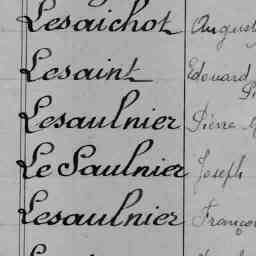 Lesaichot
Lesaint Edouard
Lesaulnier Pierre
Le Saulnier Joseph
Lesaulnier